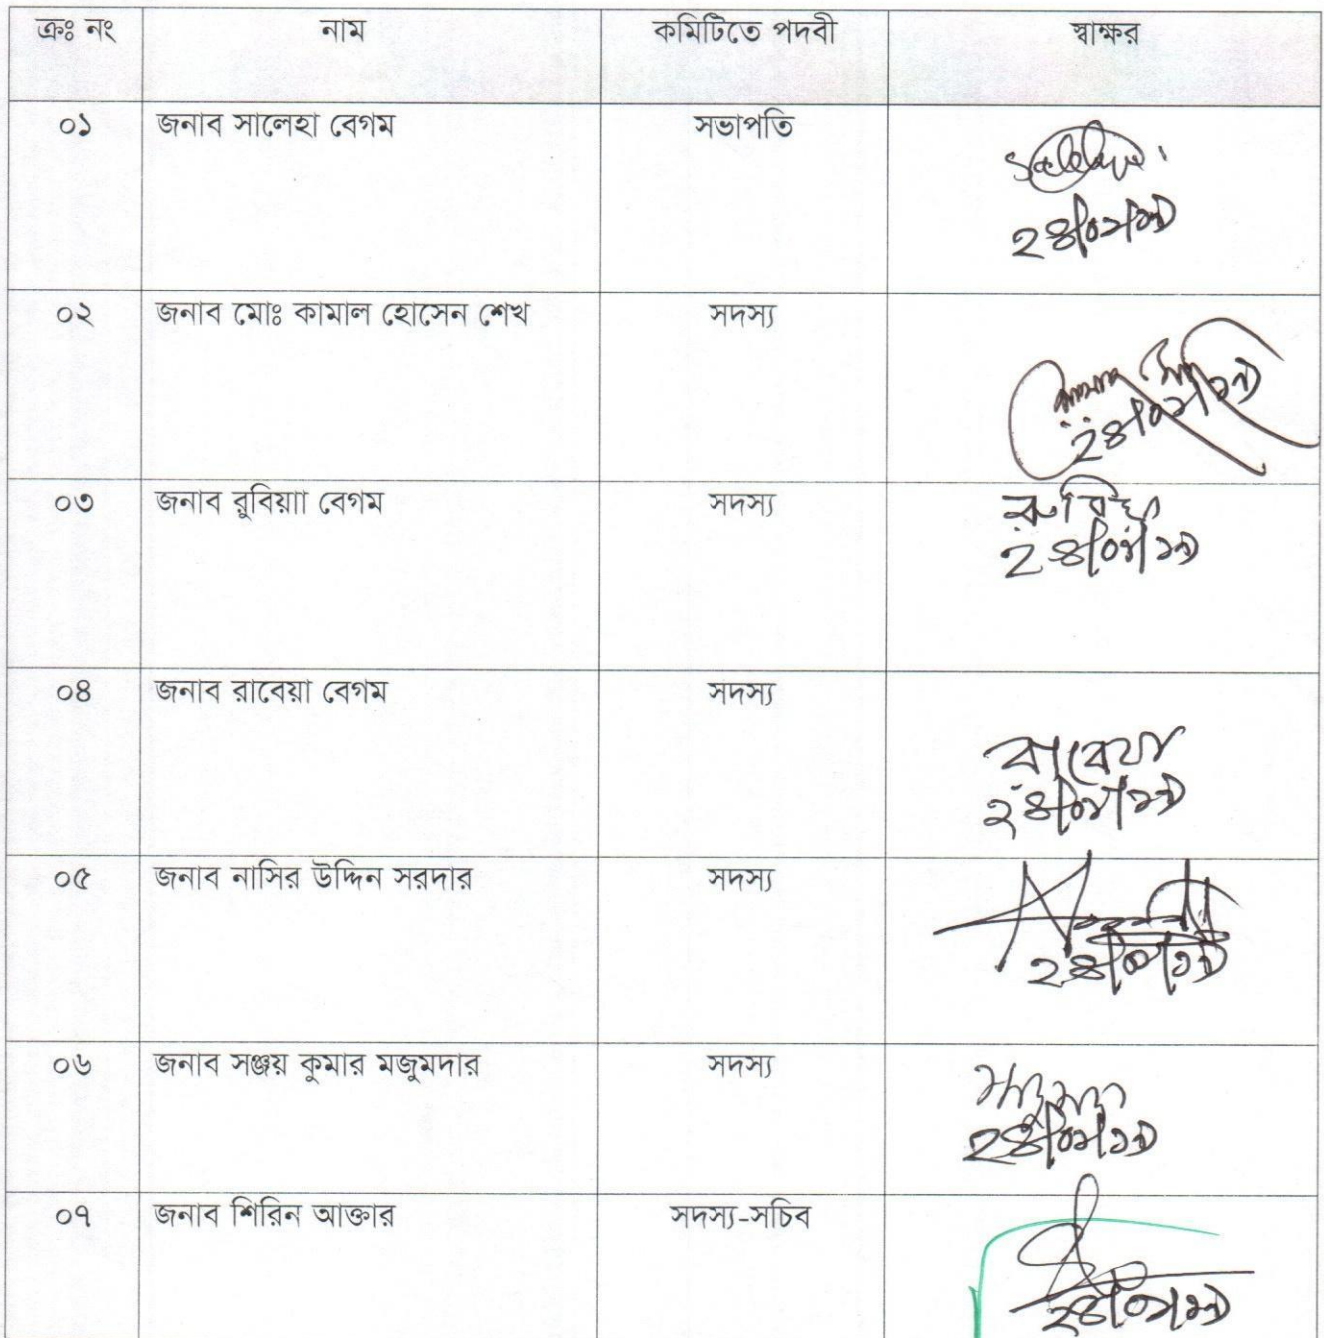 ক্রঃ নং নাম কমিটিতে পদবী স্বাক্ষর
০১ জনাব সালেহা বেগম সভাপতি
২৪/০১/১৯
০২ জনাব মোঃ কামাল হোসেন শেখ সদস্য
২৪/০১/১৯
০৩ জনাব রুবিয়াা বেগম সদস্য
রুবিয়া
২৪/০১/১৯
০৪ জনাব রাবেয়া বেগম সদস্য
রাবেয়া
২৪/০১/১৯
০৫ জনাব নাসির উদ্দিন সরদার সদস্য
২৪/০১/১৯
০৬ জনাব সঞ্জয় কুমার মজুমদার সদস্য
২৪/০১/১৯
০৭ জনাব শিরিন আক্তার সদস্য-সচিব
২৪/০১/১৯